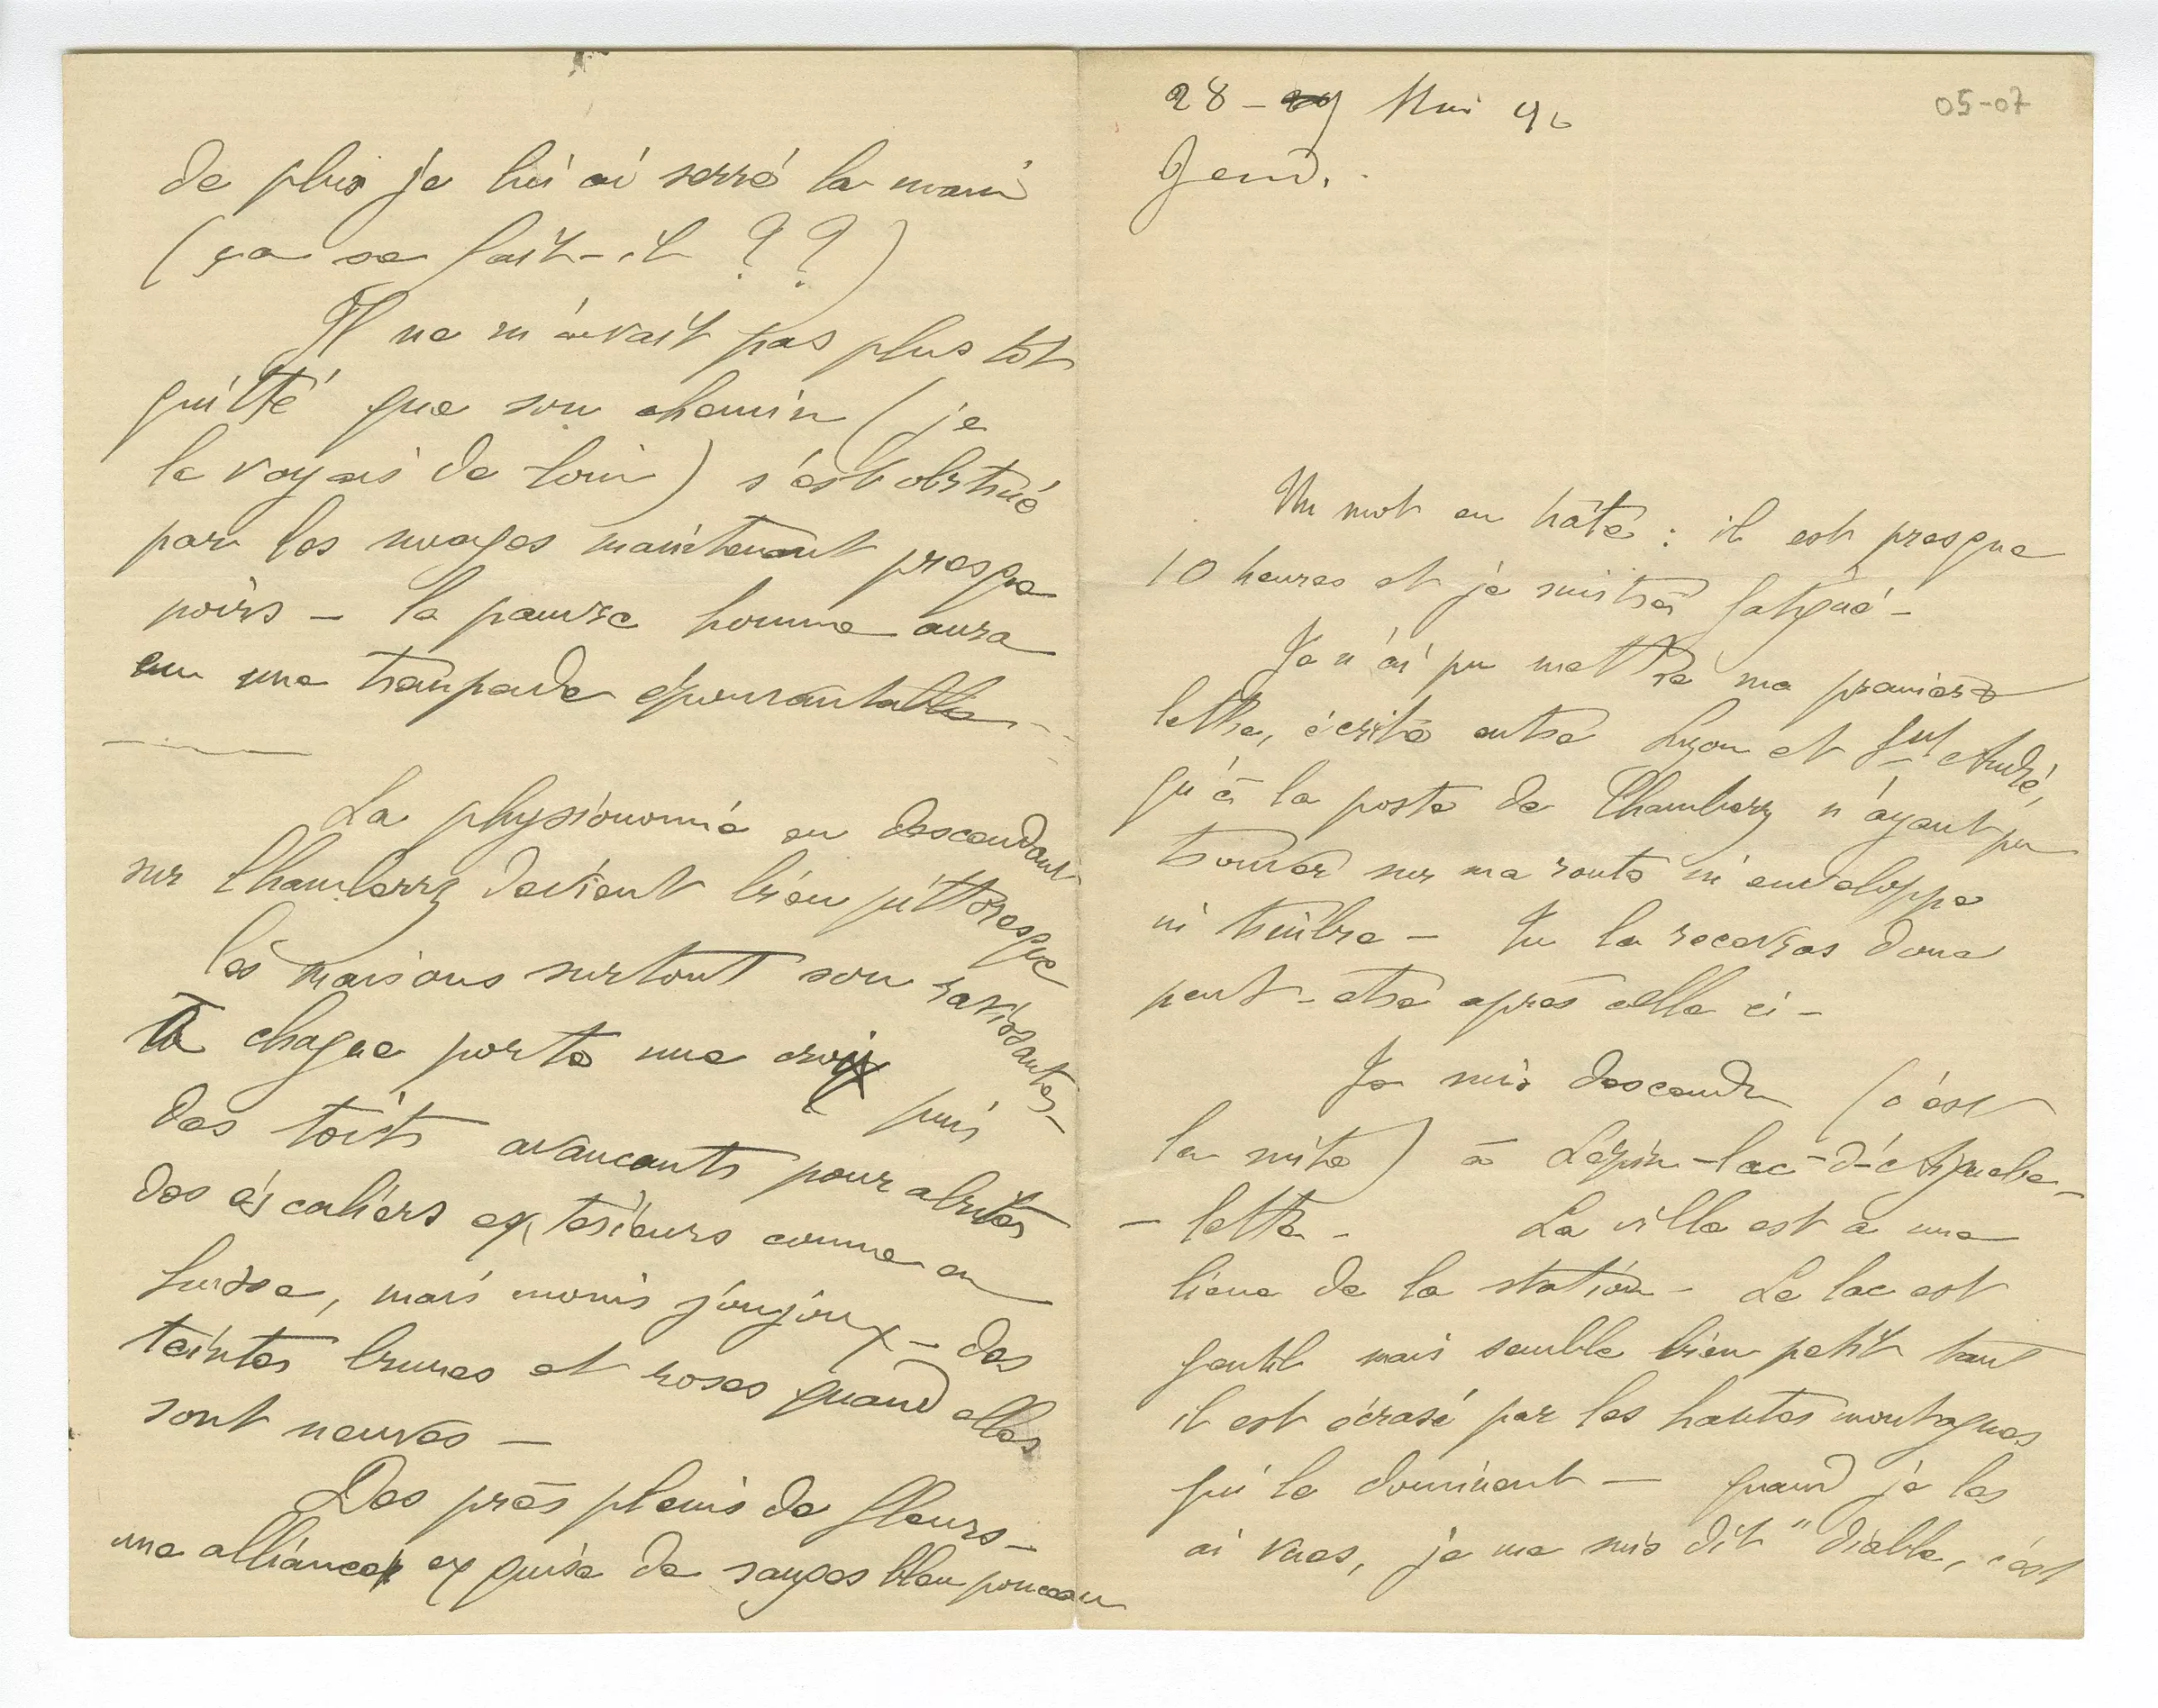 28 - 29 Mai 96
Jeud.
05-07
Un mot en hâte : il est presque
10 heures et je suis très fatigué -
Je n'ai pu mettre ma première
lettre, écrite entre Lyon et St André,
qu'à la poste de Chambery n'ayant pu
trouver sur ma route ni enveloppe
ni timbre - Tu la recevras donc
peut-être après celle ci -
Je suis descendu (c'est
la suite) à Lépin-lac-d'Aiguebe-
- lette - La ville est à une
lieue de la station - Le lac est
gentil mais semble bien petit tant
il est écrasé par les hautes montagnes
qui le dominent - quand je les
ai vues, je me suis dit " diable, c'est
de plus je lui ai serré la main
(ça se fait-il ??)
Il ne m'avait pas plus tôt
quitté que son chemin (je
le voyais de loin) s'est obstrué
par les nuages maintenant presque
noirs - le pauvre homme aura
eu une trempade épouvantable
La physionomie en descendant
sur Chambery devient bien pittoresque
les maisons surtout son ravissantes -
à chaque porte une croix puis
des toits avancants pour abriter
des escaliers extérieurs comme en
Suisse, mais moins joujoux - des
teintes brunes et roses quand elles
sont neuves -
Des près pleins de fleurs -
une alliance exquise de sauges bleu ponceau